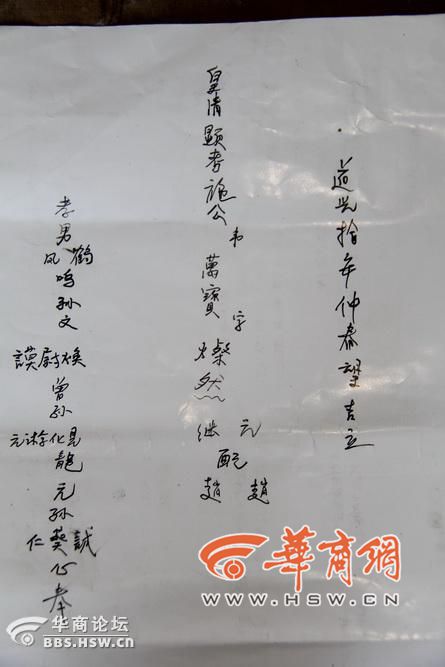 道光拾年仲春望吉立
皇清顯考施公韦萬寶字燦然元继配趙趙
孝男鶴凤鸣孙文焕蔚謨曾孙化元龍元孙誠葵仁心奉
華商網
WWW.HSW.CN
华商论坛
BBS.HSW.CN